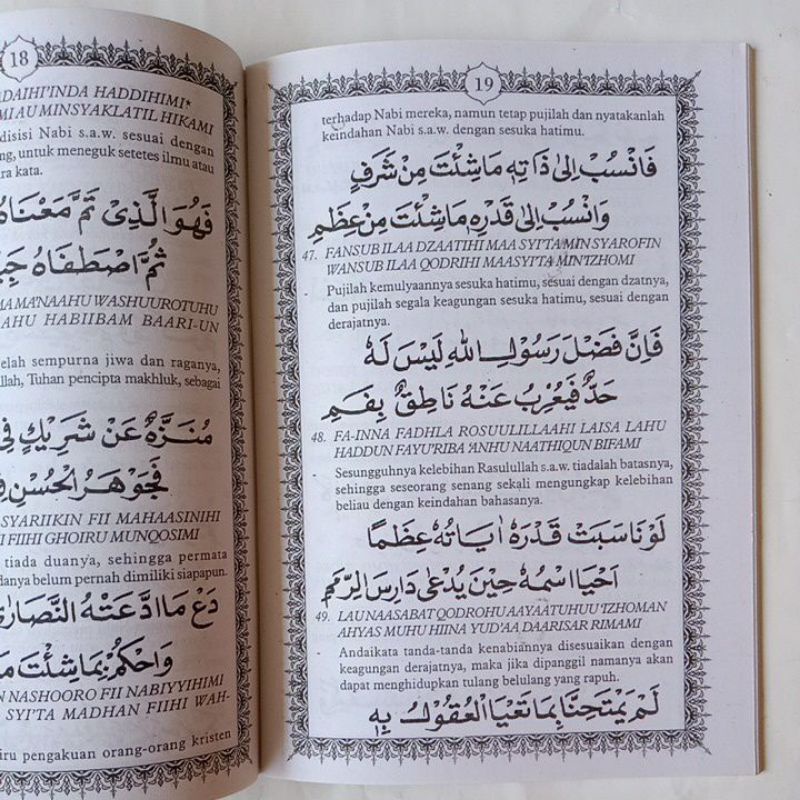 18
DAIHI'INDA HADDIHIMI*
MI AU MINSYAKLATIL HIKAMI
disisi Nabi s.a.w. sesuai dengan
ng, untuk meneguk setetes ilmu atau
ra kata.
فَهُوَ الَّذِيْ تَمَّ مَعْنَاهُ
ثُمَّ اصْطَفَاهُ
MA MA'NAAHU WASHUUROTUHU
AHU HABIIBAM BAARI-UN
elah sempurna jiwa dan raganya,
llah, Tuhan pencipta makhluk, sebagai
مُنَزَّهٌ عَنْ شَرِيْكٍ فِيْ
فَجَوْهَرُ الْحُسْنِ
SYARIIKIN FII MAHAASINIHI
I FIIHI GHOIRU MUNQOSIMI
tiada duanya, sehingga permata
danya belum pernah dimiliki siapapun.
دَعْ مَا ادَّعَتْهُ النَّصَارَى
وَاحْكُمْ بِمَا شِئْتَ
N NASHOORO FII NABIYYIHIMI
SYI'TA MADHAN FIIHI WAH-
iru pengakuan orang-orang kristen
19
terhadap Nabi mereka, namun tetap pujilah dan nyatakanlah
keindahan Nabi s.a.w. dengan sesuka hatimu.
فَانْسُبْ اِلَى ذَاتِهِ مَاشِئْتَ مِنْ شَرَفٍ
وَانْسُبْ اِلَى قَدْرِهِ مَاشِئْتَ مِنْ عِظَمِ
47. FANSUB ILAA DZAATIHI MAA SYI'TA MIN SYAROFIN
WANSUB ILAA QODRIHI MAASYI'TA MIN'IZHOMI
- Pujilah kemulyaannya sesuka hatimu, sesuai dengan dzatnya,
dan pujilah segala keagungan sesuka hatimu, sesuai dengan
derajatnya.
فَاِنَّ فَضْلَ رَسُوْلِ اللهِ لَيْسَ لَهُ
حَدٌّ فَيُعْرِبُ عَنْهُ نَاطِقٌ بِفَمِ
48. FA-INNA FADHLA ROSUULILLAAHI LAISA LAHU
HADDUN FAYU'RIBA 'ANHU NAATHIQUN BIFAMI
- Sesungguhnya kelebihan Rasulullah s.a.w. tiadalah batasnya,
sehingga seseorang senang sekali mengungkap kelebihan
beliau dengan keindahan bahasanya.
لَوْ نَاسَبَتْ قَدْرَهُ اٰيَاتُهُ عِظَمًا
اَحْيَا اسْمُهُ حِيْنَ يُدْعَى دَارِسَ الرِّمَمِ
49. LAU NAASABAT QODROHU AAYAATUHUU 'IZHOMAN
AHYAS MUHU HIINA YUD'AA DAARISAR RIMAMI
- Andaikata tanda-tanda kenabiannya disesuaikan dengan
keagungan derajatnya, maka jika dipanggil namanya akan
dapat menghidupkan tulang belulang yang rapuh.
لَمْ يَمْتَحِنَّا بِمَا تَعْيَا الْعُقُوْلُ بِهِ